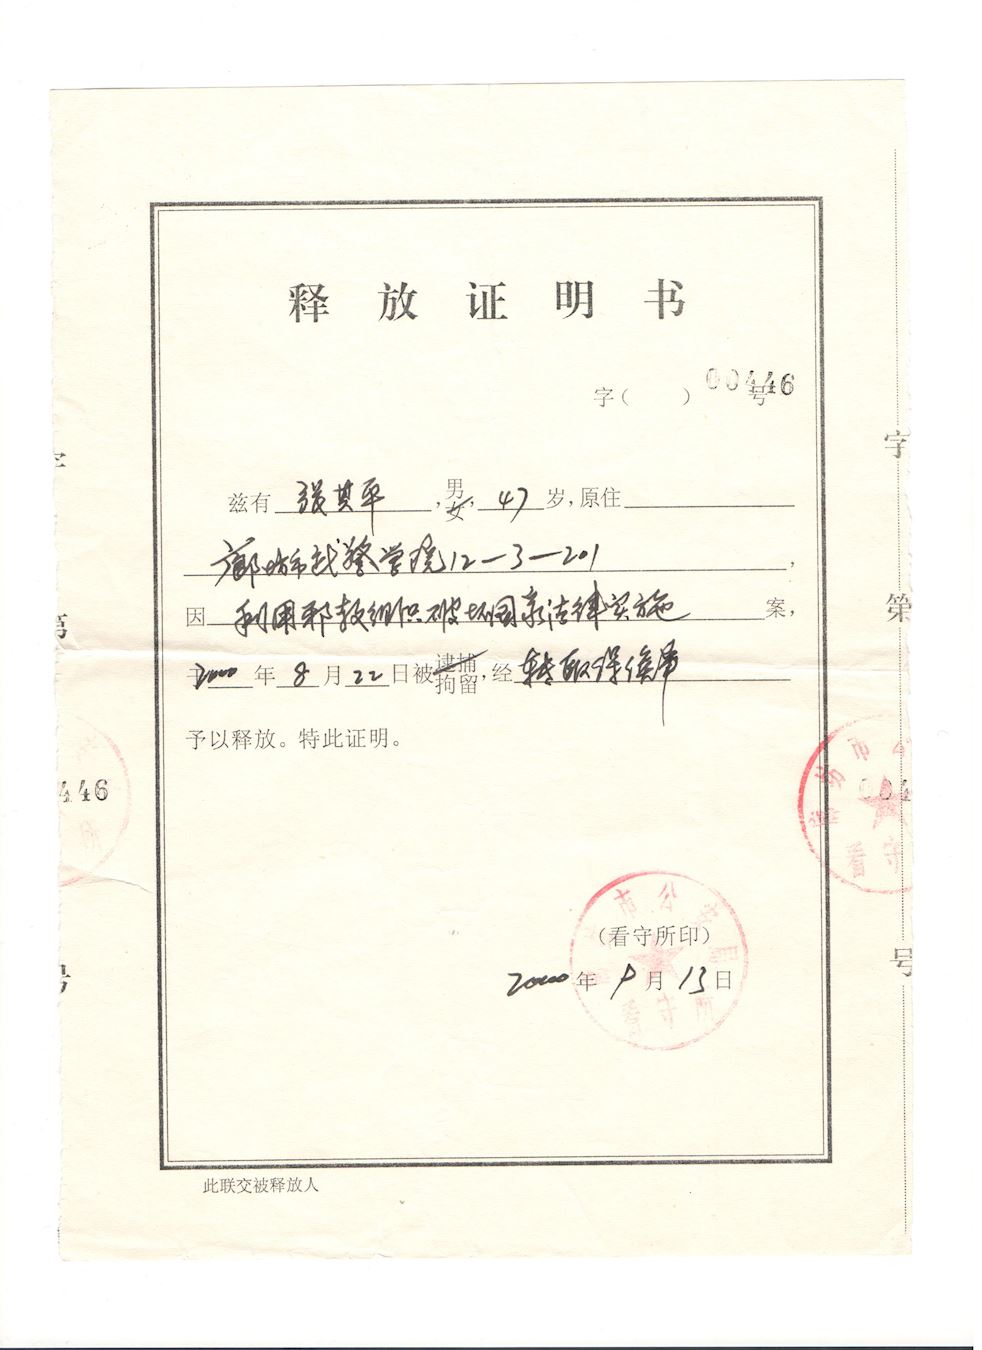 释放证明书
字（ ）00446号
兹有 张其平 ，男/女，47岁，原住
廊坊市武警学院12-3-201，
因 利用邪教组织破坏国家法律实施 案，
于2000年8月22日被逮捕/拘留，经 转取保候审
予以释放。特此证明。
（看守所印）
2000年9月13日
市公安局
看守所
此联交被释放人
字
第
446
号
字
第
坊市公
004
看守
号